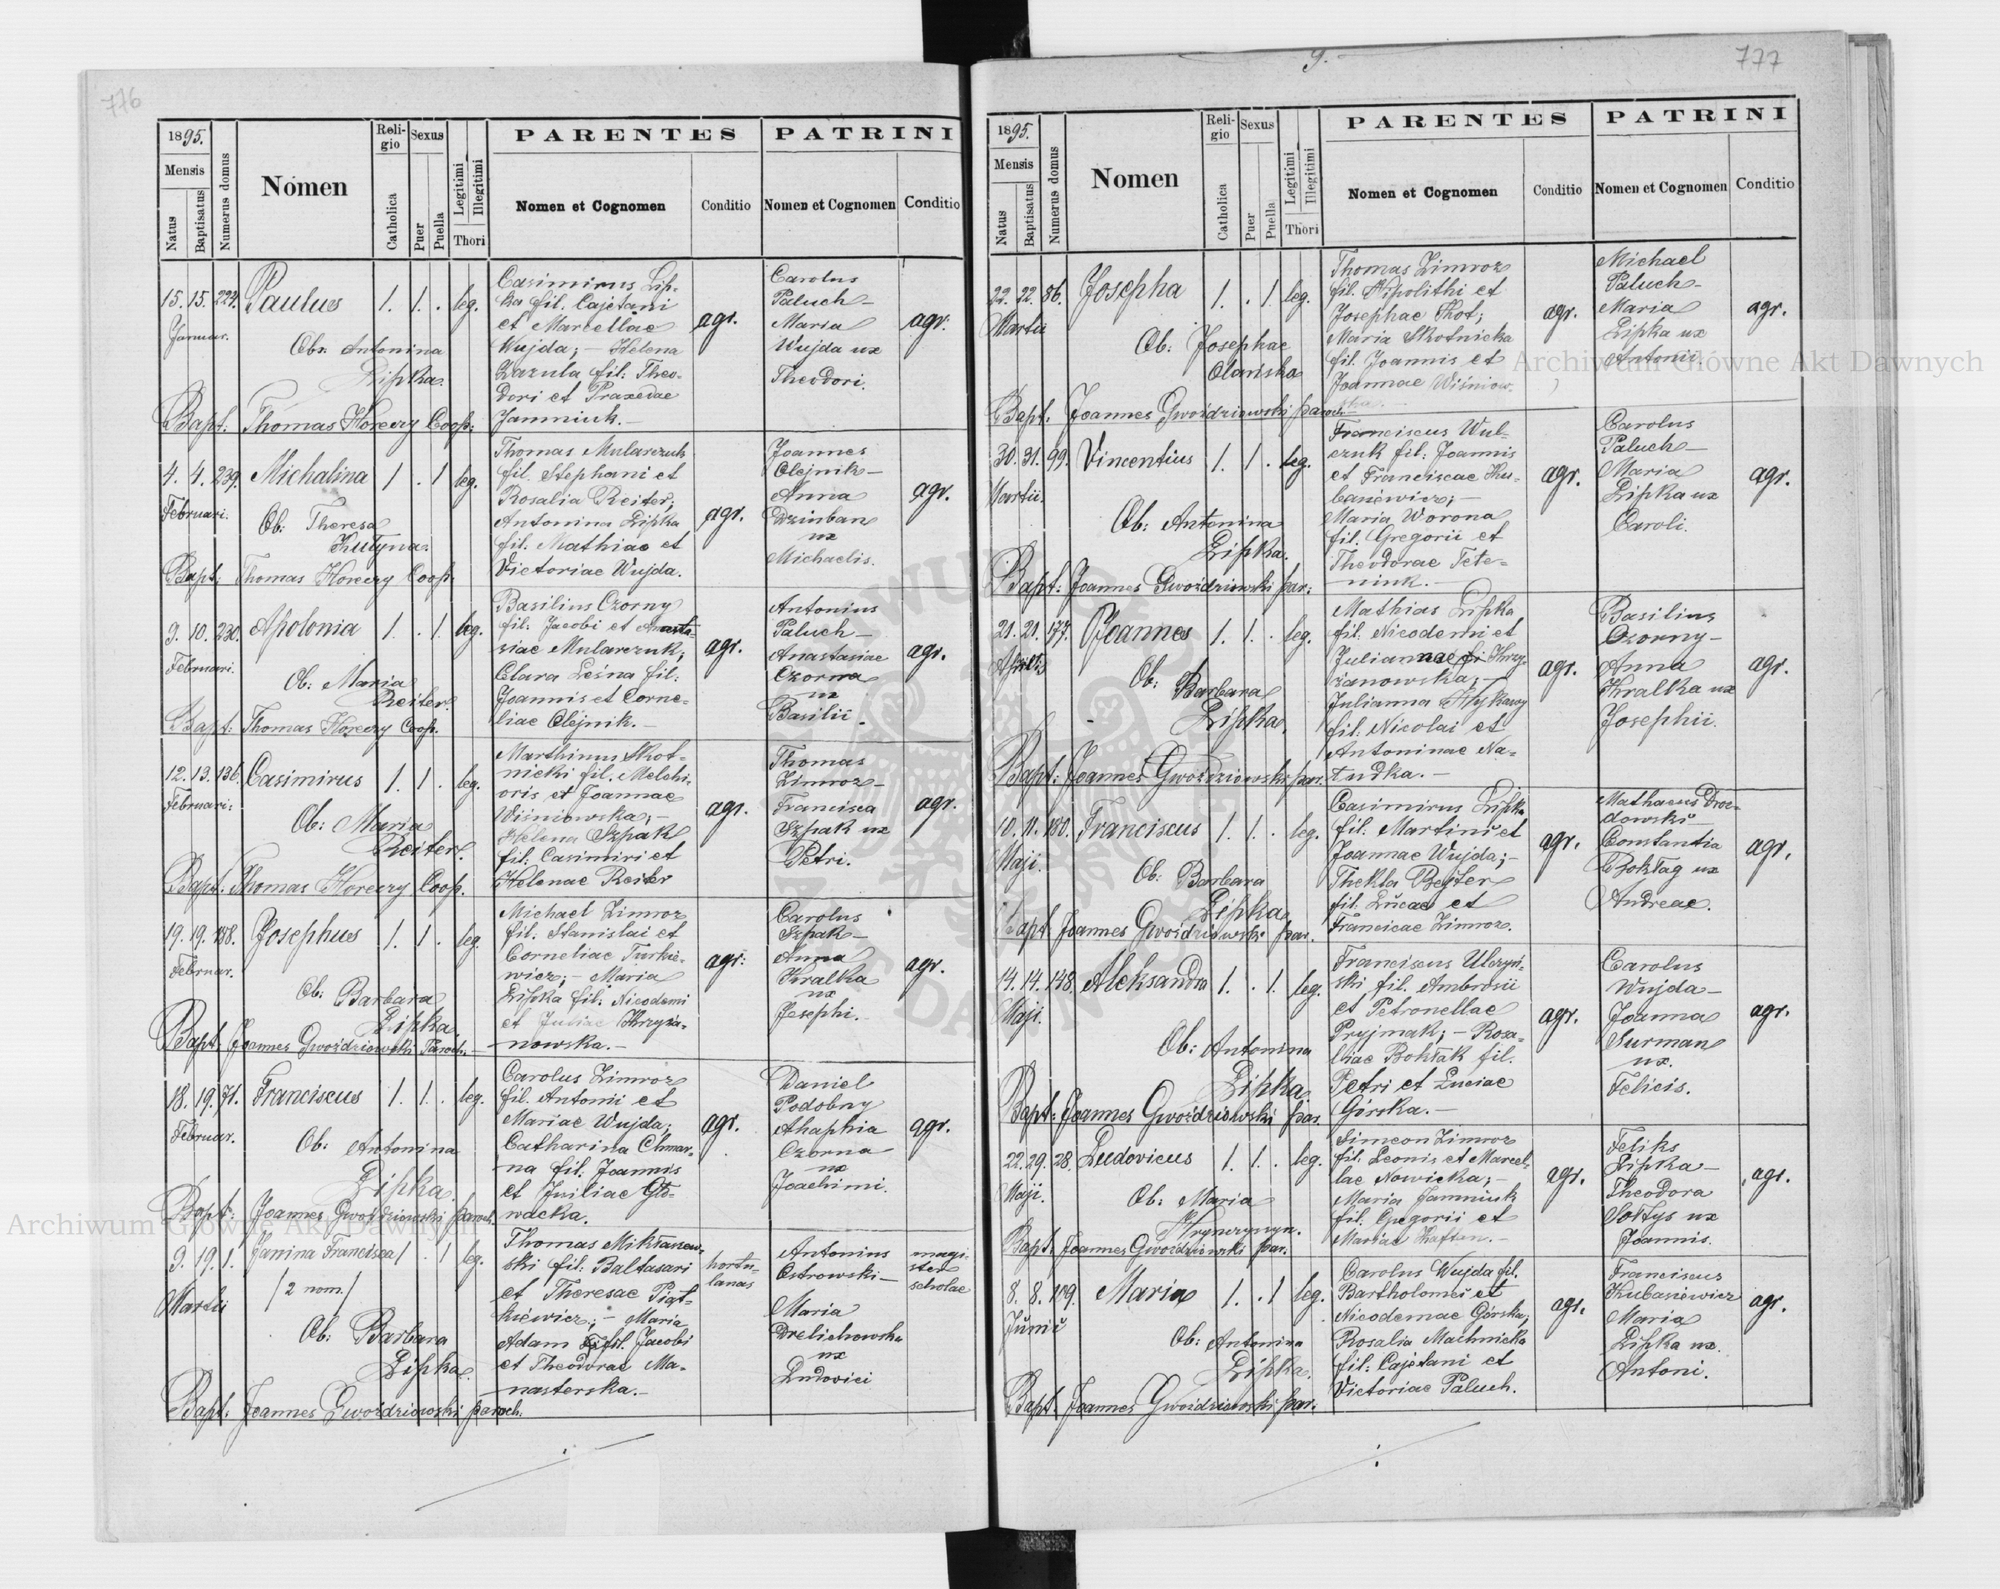 776
1895.
Mensis
Natus
Baptisatus
Numerus domus
Nomen
Religio
Catholica
Sexus
Puer
Puella
Legitimi
Illegitimi
Thori
PARENTES
Nomen et Cognomen
Conditio
PATRINI
Nomen et Cognomen
Conditio
15. 15. 224. Paulus 1. 1. . leg.
Januar.
Obs. Antonina
Lipka.
Casimirus Lip-
ka fil. Cajetani
et Marcellae
Wujda; – Helena
Zazula fil: Theo-
dori et Praxedae
Jamniuk. –
agr.
Carolus
Paluch –
Maria
Wujda ux
Theodori.
agr.
Bapt: Thomas Horeczy Coop:
4. 4. 239. Michalina 1 . 1 leg.
Februari.
Ob: Theresa
Kutyna.
Thomas Mularczuk
fil. Stephani et
Rosalia Reiter;
Antonina Lipka
fil. Mathiae et
Victoriae Wujda.
agr.
Joannes
Olejnik –
Anna
Dziuban
ux
Michaelis.
agr.
Bapt: Thomas Horeczy Coop.
9. 10. 230. Apolonia 1. . 1. leg.
Februari.
Ob: Maria
Reiter
Basilius Czorny
fil. Jacobi et Anasta-
siae Mularczuk;
Clara Leśna fil:
Joannis et Corne-
liae Olejnik. –
agr.
Antonius
Paluch –
Anastasiae
Czorna
ux
Basilii.
agr.
Bapt: Thomas Horeczy Coop.
12. 13. 136. Casimirus 1. 1 . leg.
Februari:
Ob: Maria
Reiter.
Marthinus Skot-
nicki fil. Melchi-
oris et Joannae
Wiśniowska; –
Helena Szpak
fil. Casimiri et
Helenae Reiter
agr.
Thomas
Zimroz –
Francisca
Szpak ux
Petri.
agr.
Bapt: Thomas Horeczy Coop.
19. 19. 188. Josephus 1. 1 . leg.
Februar.
Ob: Barbara
Lipka.
Michael Zimroz
fil. Stanislai et
Corneliae Turkie-
wicz; – Maria
Lipka fil: Nicodemi
et Juliae Krzyża-
nowska. –
agr.
Carolus
Szpak –
Anna
Kralka
ux
Josephi.
agr.
Bapt. Joannes Gwoździowski Paroch. –
18. 19. 71. Franciscus 1. 1. . leg.
Februar.
Ob: Antonina
Lipka.
Carolus Zimroz
fil. Antonii et
Mariae Wujda;
Catharina Chmar-
na fil. Joannis
et Juiliae Gło-
wacka.
agr.
Daniel
Podobny
Ahaphia
Czorna
ux
Joachimi.
agr.
Bapt: Joannes Gwoździowski paroch.
9. 19. 1. Janina Francisca 1 . 1 leg.
Martii
/2 nom./
Ob: Barbara
Lipka.
Thomas Mikłasiew-
ski fil: Baltasari
et Theresae Piąt-
kiewicz; – Maria
Adam fil. Jacobi
et Theodorae Ma-
nasterska. –
hortu-
lanas
Antonius
Ostrowski –
Maria
Drelichowska
ux
Ludovici
magi-
ster
scholae
Bapt: Joannes Gwoździowski paroch.
9.
777
1895.
Mensis
Natus
Baptisatus
Numerus domus
Nomen
Religio
Catholica
Sexus
Puer
Puella
Legitimi
Illegitimi
Thori
PARENTES
Nomen et Cognomen
Conditio
PATRINI
Nomen et Cognomen
Conditio
22. 22. 86. Josepha 1. . 1. leg.
Martii
Ob: Josephae
Olańska
Thomas Zimroz
fil. Hipolithi et
Josephae Kot;
Maria Skotnicka
fil. Joannis et
Joannae Wiśniow-
ska. –
agr.
Michael
Paluch –
Maria
Lipka ux
Antonii.
agr.
Bapt: Joannes Gwoździowski paroch.
30. 31. 99. Vincentius 1. 1 . leg.
Martii.
Ob: Antonina
Lipka.
Franciscus Wul-
czuk fil: Joannis
et Franciscae Ku-
basiewicz; –
Maria Worona
fil. Gregorii et
Theodorae Tete-
niuk. –
agr.
Carolus
Paluch –
Maria
Lipka ux
Caroli.
agr.
Bapt: Joannes Gwoździowski par:
21. 21. 177. Joannes 1. 1. . leg.
Aprilis
Ob: Barbara
Lipka.
Mathias Lipka
fil. Nicodemi et
Juliannae Krzy-
żanowska; –
Julianna
fil. Nicolai et
Antoninae Na-
tudka. –
agr.
Basilius
Czorny –
Anna
Kralka ux
Josephii.
agr.
Bapt: Joannes Gwoździowski par.
10. 11. 180. Franciscus 1. 1. . leg.
Maji.
Ob: Barbara
Lipka
Casimirus Lipka
fil. Martini et
Joannae Wujda; –
Thekla Rejter
fil. Lucae et
Francicae Zimroz.
agr.
Mathaeus Droz-
dowski
Constantia
Boktag ux
Andreae.
agr.
Bapt Joannes Gwoździowski par.
14. 14. 148. Aleksandra 1. . 1. leg.
Maji.
Ob: Antonina
Lipka
Franciscus Ulczyń-
ski fil. Ambrosii
et Petronellae
Pryjmak; – Rosa-
liae Boktak fil.
Petri et Luciae
Górska. –
agr.
Carolus
Wujda –
Joanna
Surman
ux.
Felicis.
agr.
Bapt: Joannes Gwoździowski par.
22. 29. 28. Ludovicus 1. 1. . leg.
Maji.
Ob: Maria
Hrynczyszyn.
Simeon Zimroz
fil. Leonis et Marcel-
lae Nowicka; –
Maria Jamniuk
fil. Gregorii et
Mariae Kaftan. –
agr.
Feliks
Lipka –
Theodora
Sołtys ux
Joannis.
agr.
Bapt: Joannes Gwoździowski par.
8. 8. 109. Maria 1. . 1 leg.
Junii
Ob: Antonina
Lipka.
Carolus Wujda fil.
Bartholomei et
Nicodemae Górska;
Rosalia Machnicka
fil: Cajetani et
Victoriae Paluch.
agr.
Franciscus
Kubasiewicz
Maria
Lipka ux.
Antoni.
agr.
Bapt. Joannes Gwoździowski par.
Archiwum Główne Akt Dawnych
Archiwum Główne Akt Dawnych